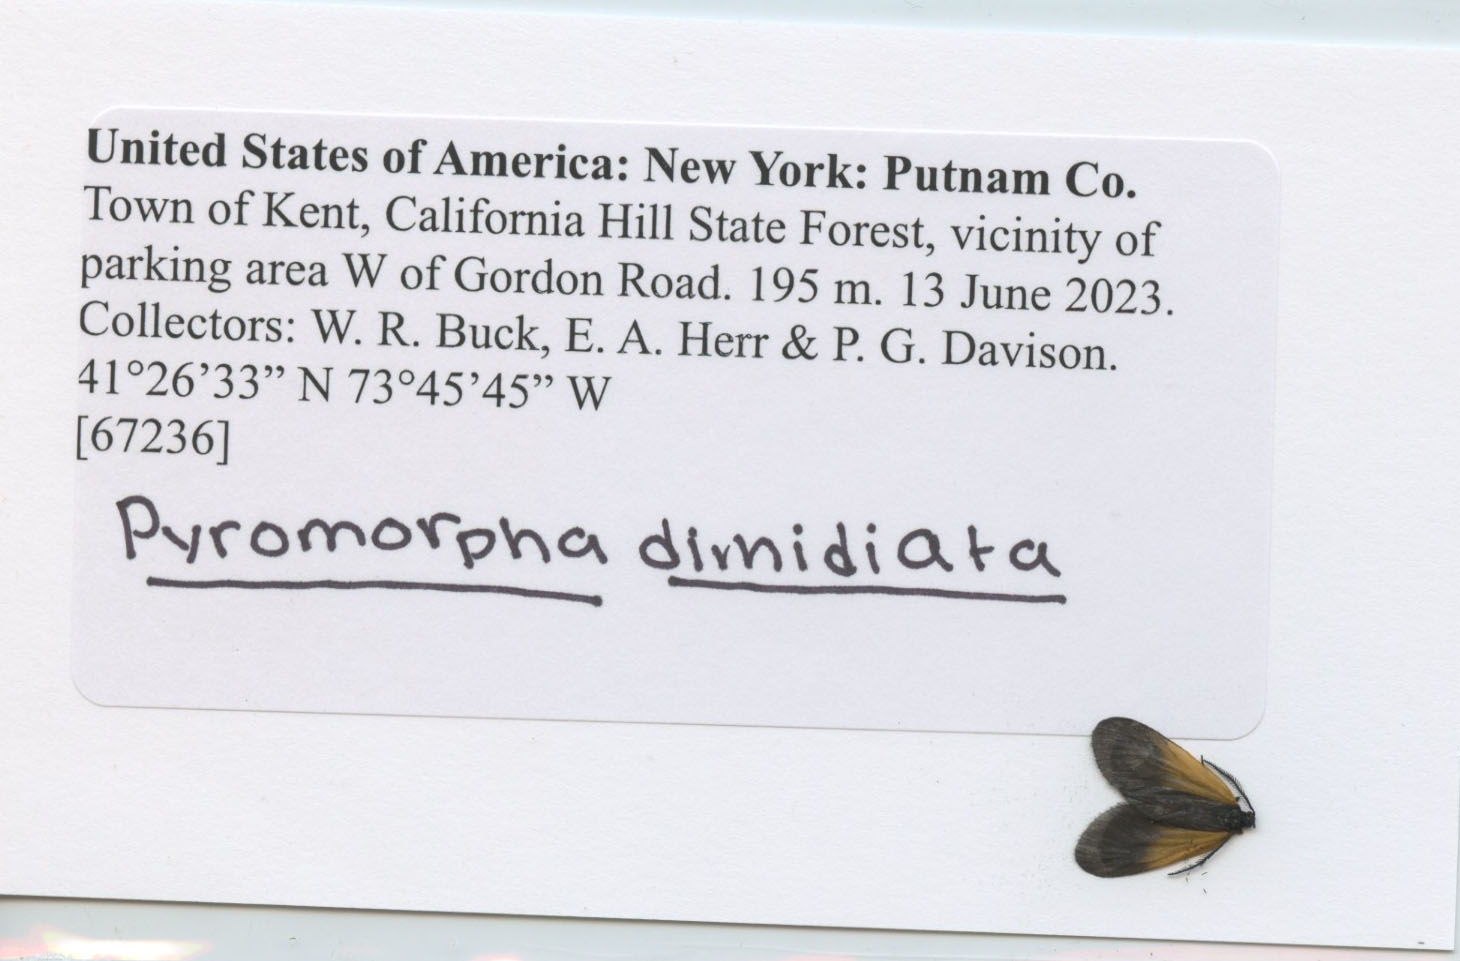 United States of America: New York: Putnam Co.
Town of Kent, California Hill State Forest, vicinity of
parking area W of Gordon Road. 195 m. 13 June 2023.
Collectors: W. R. Buck, E. A. Herr & P. G. Davison.
41°26’33” N 73°45’45” W
[67236]
Pyromorpha dimidiata